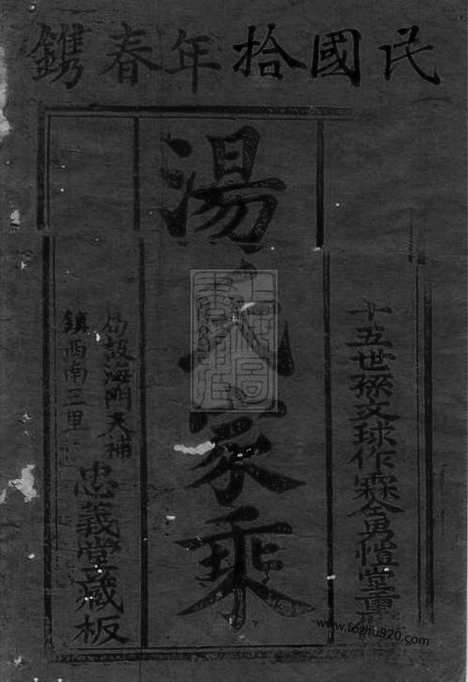 民國拾年春鐫
十五世孫文球作霖仝男愷堂重
湯氏家乘
局設海門天補
鎮西南三里
忠義堂藏板